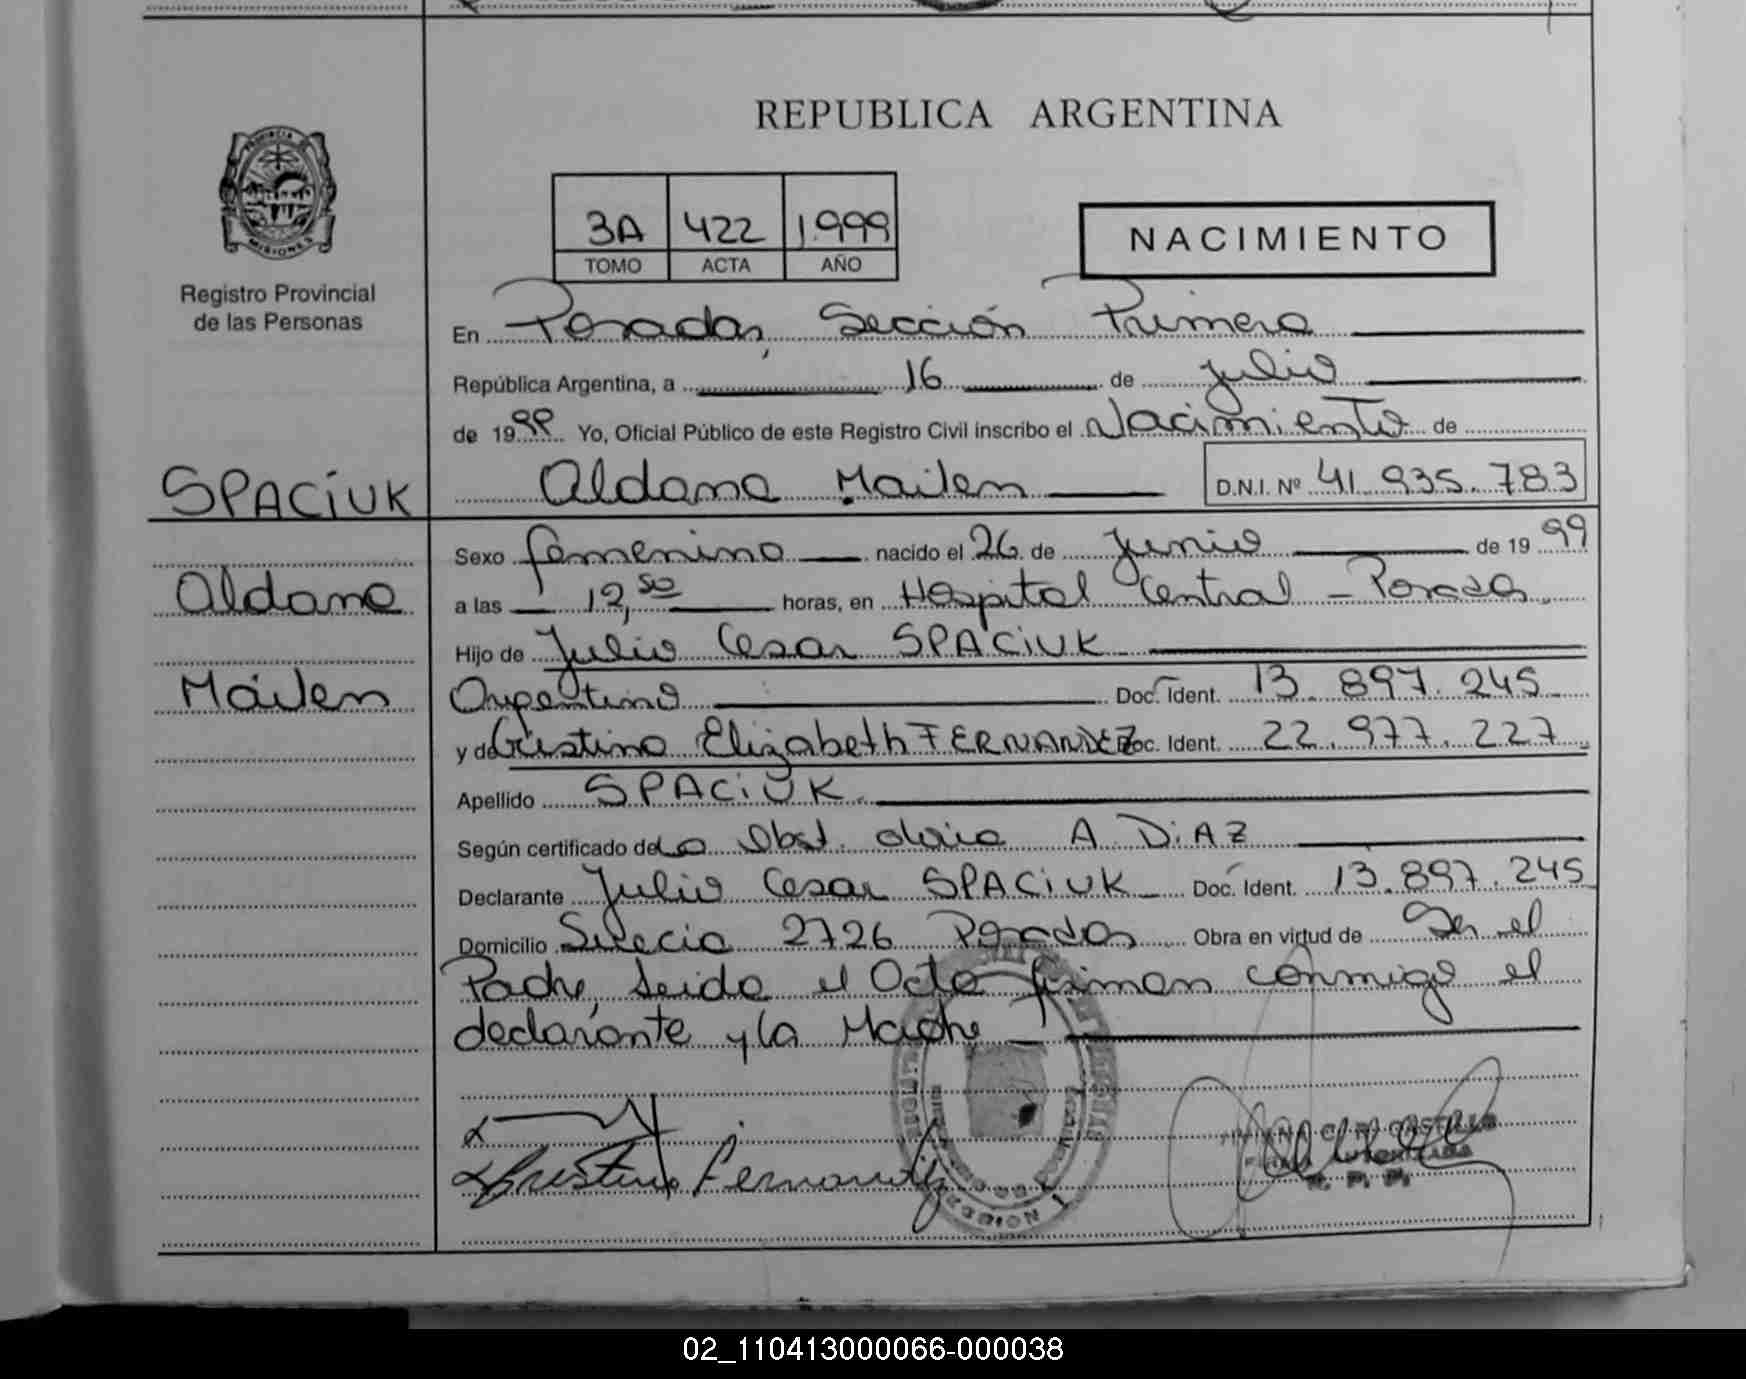 REPUBLICA ARGENTINA
PROVINCIA DE
MISIONES
Registro Provincial
de las Personas
3A 422 1.999
TOMO ACTA AÑO
NACIMIENTO
En Posadas, Sección Primera
República Argentina, a 16 de Julio
de 1999 Yo, Oficial Público de este Registro Civil inscribo el Nacimiento de
SPACiUK
Aldana Mailen D.N.I. Nº 41.935.783
Sexo femenino nacido el 26 de Junio de 1999
Aldana
a las 12,50 horas, en Hospital Central - Posadas
Hijo de Julio Cesar SPACiUK
Mailen
Argentino Doc. Ident. 13.897.245
y de Cristina Elizabeth FERNANDEZ Doc. Ident. 22.977.227
Apellido SPACiUK
Según certificado de La Obst. A. DiAZ
Declarante Julio Cesar SPACiUK Doc. Ident. 13.897.245
Domicilio Suecia 2726 Posadas Obra en virtud de Ser el
Padre, Leida el Acta firman conmigo el
declarante y la Madre
Cristina Fernandez
CASTILLO
FIRMA AUTORIZADA
R. P. P.
SECCION 1
02_110413000066-000038